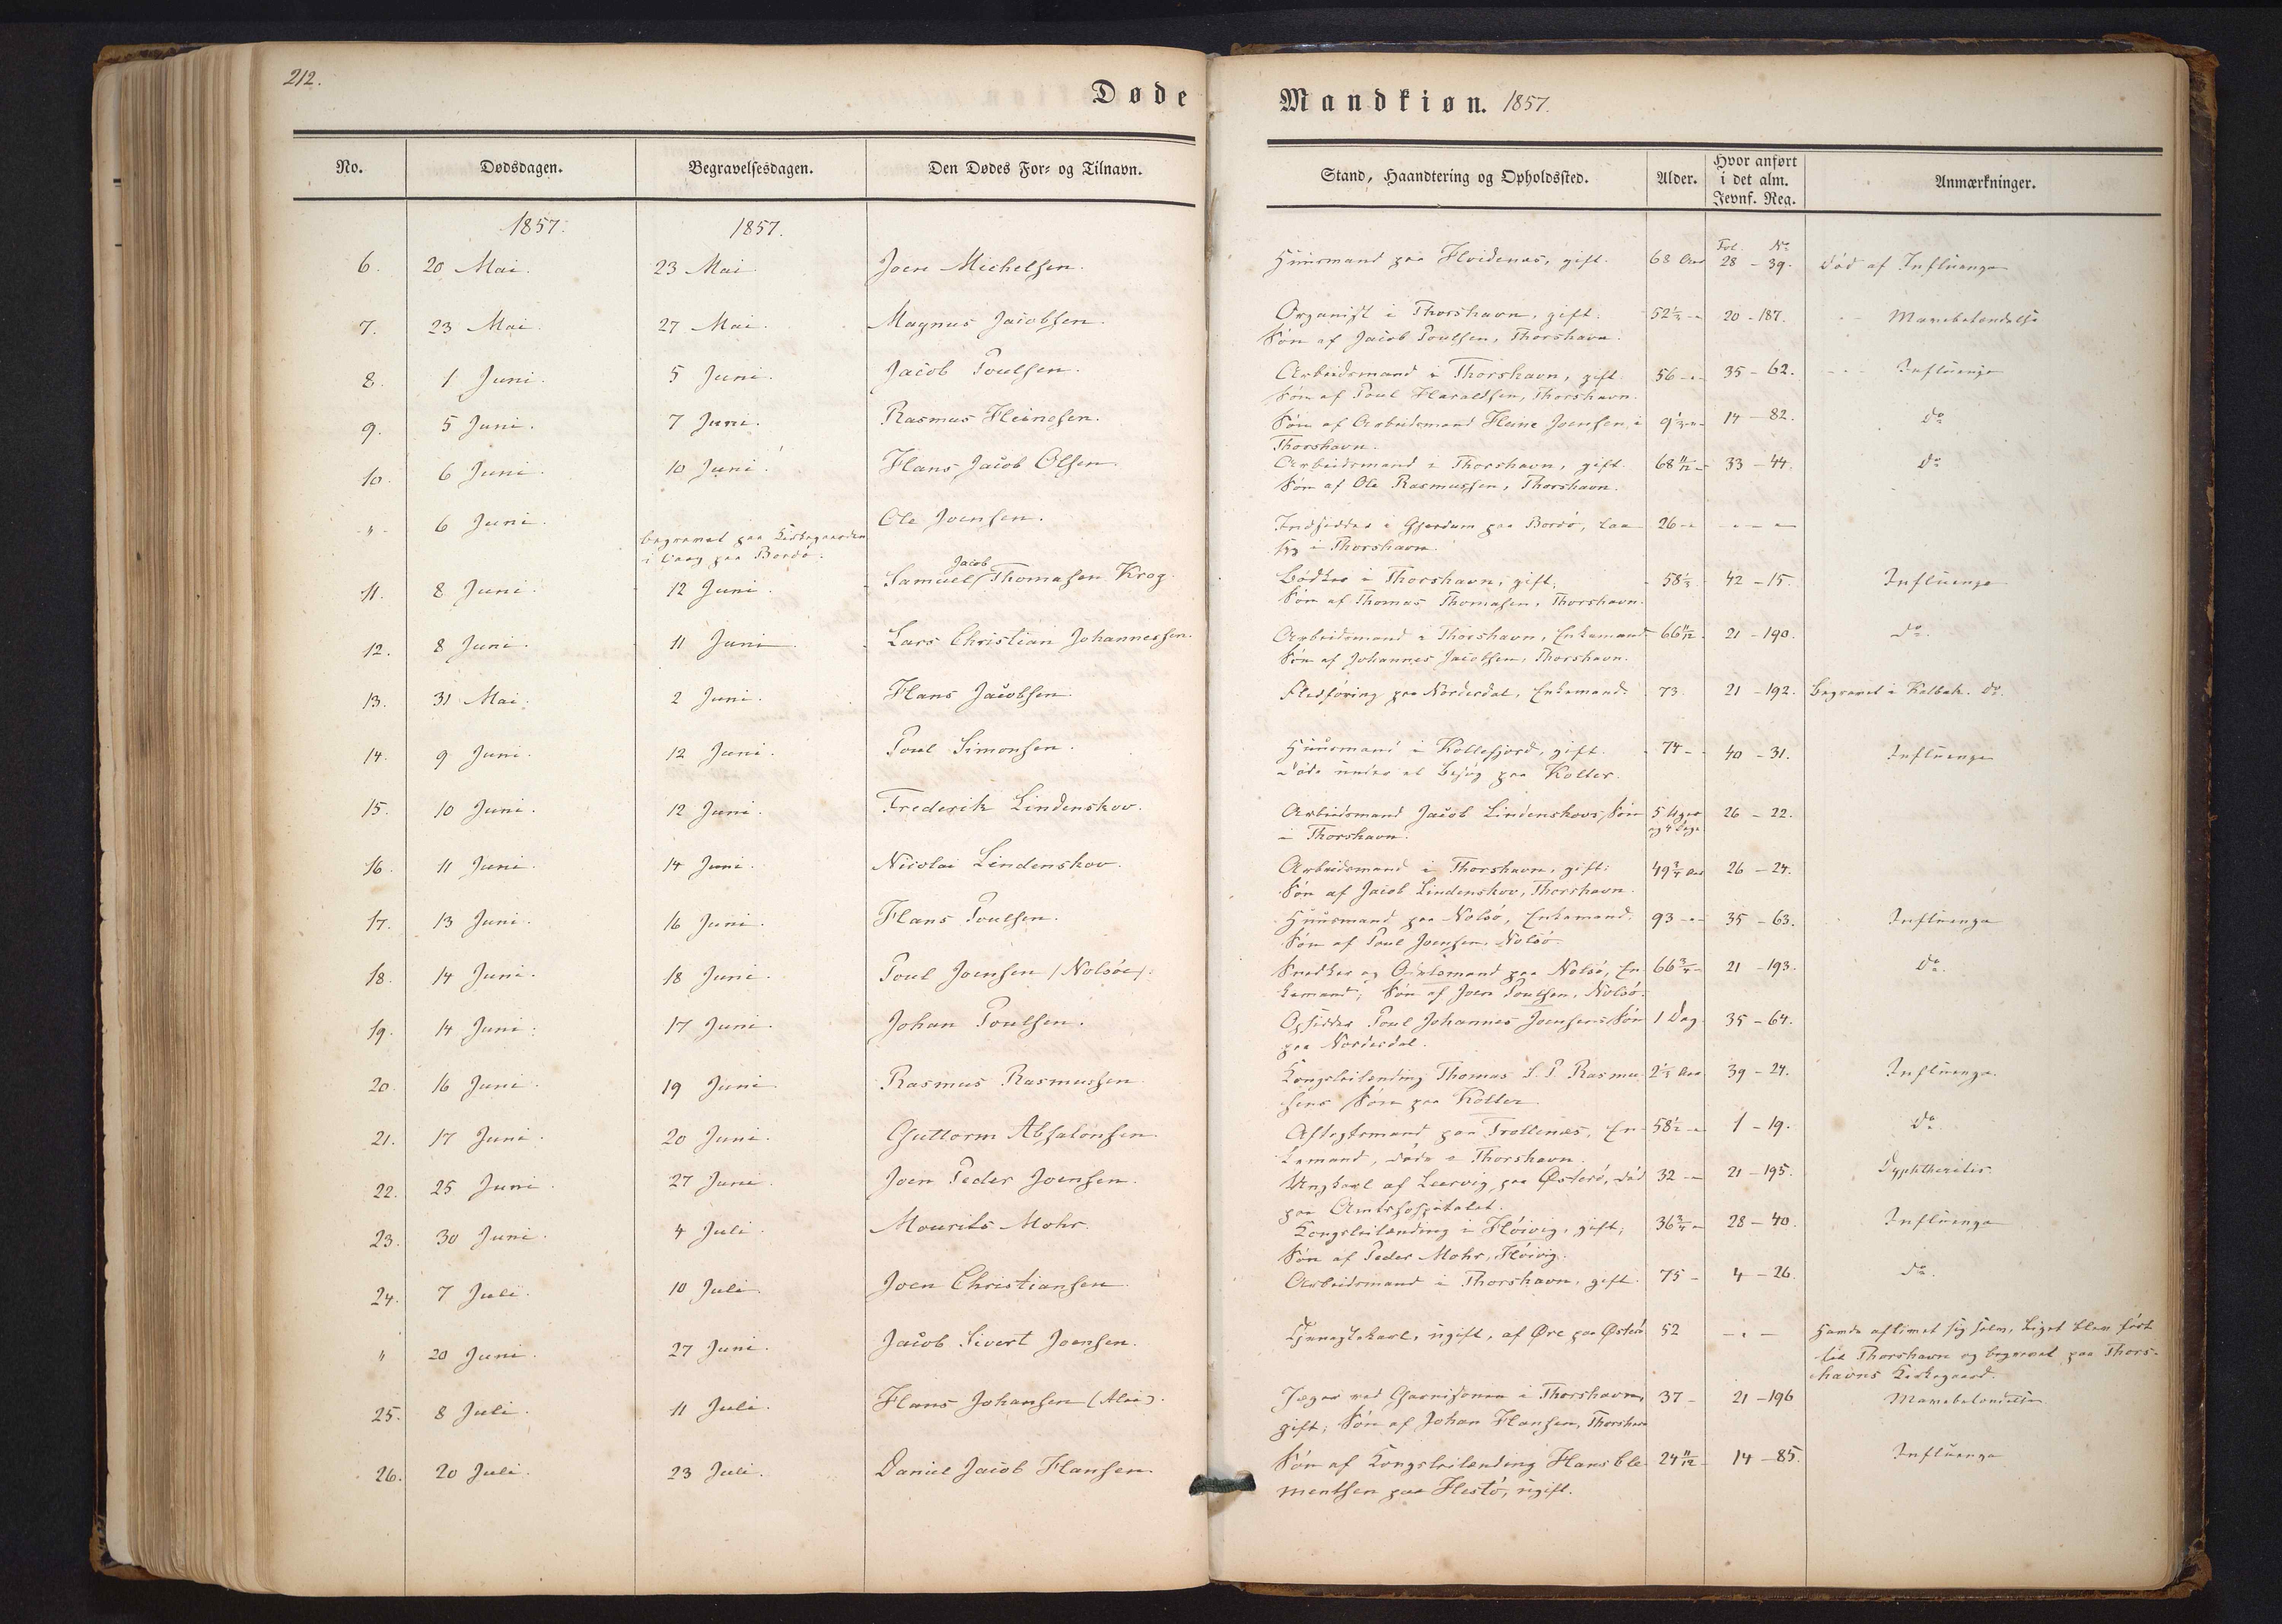 212.
Døde
Mandkiøn. 1857.
No. Dødsdagen. Begravelsesdagen. Den Dødes For- og Tilnavn. Stand, Haandtering og Opholdssted. Alder. Hvor anført i det alm. Jevnf. Reg. Anmærkninger.
1857. 1857. Fol. No
6. 20 Mai. 23 Mai. Joen Michelsen. Huusmand paa Hvidenæs, gift. 68 Aar 28 - 39. död af Influenza
7. 23 Mai. 27 Mai. Magnus Jacobsen. Organist i Thorshavn, gift. 52 1/3 20 - 187. Mavebetændelse
Sön af Jacob Poulsen, Thorshavn.
8. 1 Juni. 5 Juni. Jacob Poulsen. Arbeidsmand i Thorshavn, gift. 56 35 - 62. Influenza
Sön af Poul Haraldsen, Thorshavn.
9. 5 Juni. 7 Juni. Rasmus Heinesen. Sön af Arbeidsmand Heine Joensen, i 9 1/3 14 - 82. do
Thorshavn.
10. 6 Juni. 10 Juni. Hans Jacob Olsen. Arbeidsmand i Thorshavn, gift. 68 11/12 33 - 44. do
Sön af Ole Rasmussen, Thorshavn.
" 6 Juni. begravet paa Kirkegaarden Ole Joensen. Indsidder i Gjerdum paa Bordö, laa 26
i Vaag paa Bordö. syg i Thorshavn.
11. 8 Juni. 12 Juni. Samuel Jacob Thomasen Krog Bödker i Thorshavn, gift. 58 1/3 42 - 15. Influenza
Sön af Thomas Thomasen, Thorshavn.
12. 8 Juni. 11 Juni Lars Christian Johannessen. Arbeidsmand i Thorshavn, Enkemand. 66 11/12 21 - 190. do.
Sön af Johannes Jacobsen, Thorshavn.
13. 31 Mai. 2 Juni. Hans Jacobsen. Fledföring paa Nordredal, Enkemand. 73 21 - 192. Begravet i Kalbak. do.
14. 9 Juni. 12 Juni. Poul Simonsen. Huusmand i Kollefjord, gift. 74 40 - 31. Influenza
Döde under et Besög paa Kolter.
15. 10 Juni. 12 Juni. Frederik Lindenskov. Arbeidsmand Jacob Lindenskovs Sön 5 Uger 26 - 22.
i Thorshavn. og 4 Dage
16. 11 Juni. 14 Juni. Nicolai Lindenskov. Arbeidsmand i Thorshavn, gift; 49 3/4 Aar 26 - 24.
Sön af Jacob Lindenskov, Thorshavn.
17. 13 Juni. 16 Juni. Hans Poulsen. Huusmand paa Nolsö, Enkemand. 93 35 - 63. Influenza
Sön af Poul Joensen, Nolsö.
18. 14 Juni. 18 Juni. Poul Joensen /Nolsöe/. Snedker og paa Nolsö, En- 66 3/4 21 - 193. do.
kemand; Sön af Joen Poulsen, Nolsö.
19. 14 Juni. 17 Juni. Johan Poulsen. Opsidder Poul Johannes Joensens Sön 1 Dag 35 - 64.
paa Nordredal.
20. 16 Juni. 19 Juni Rasmus Rasmussen Kongsleilending Thomas S. P. Rasmu- 2 1/3 Aar 39 - 24. Influenza.
sens Sön paa Kolter
21. 17 Juni. 20 Juni. Guttorm Absalonsen. Aftægtsmand paa Trollenæs, En- 58 1/2 1 - 19. do.
kemand, döde i Thorshavn.
22. 25 Juni. 27 Juni. Joen Peder Joensen. Ungkarl af Leervig paa Østerö, död 32 21 - 195. Dyphtheritis
paa Amtshospitalet.
23. 30 Juni. 4 Juli. Mourits Mohr. Kongsleilending i Höivig, gift; 36 3/4 28 - 40. Influenza
Sön af Peder Mohr, Höivig.
24. 7 Juli. 10 Juli. Joen Christiansen Arbeidsmand i Thorshavn, gift. 75 4 - 26. do.
" 20 Juni. 27 Juni. Jacob Sivert Joensen. Tjenestekarl, ugift, af Øre paa Østerö 52 Havde aflivet sig selv, Liget blev fört
til Thorshavn og begravet paa Thors-
havns Kirkegaard.
25. 8 Juli. 11 Juli. Hans Johansen Jæger ved Garnisonen i Thorshavn, 37 21 - 196 Mavebetændelse
gift; Sön af Johan Hansen, Thorshavn
26. 20 Juli. 23 Juli. Daniel Jacob Hansen. Sön af Kongsleilending Hans Cle- 24 11/12 14 - 85. Influenza
mentsen paa Hestö, ugift.